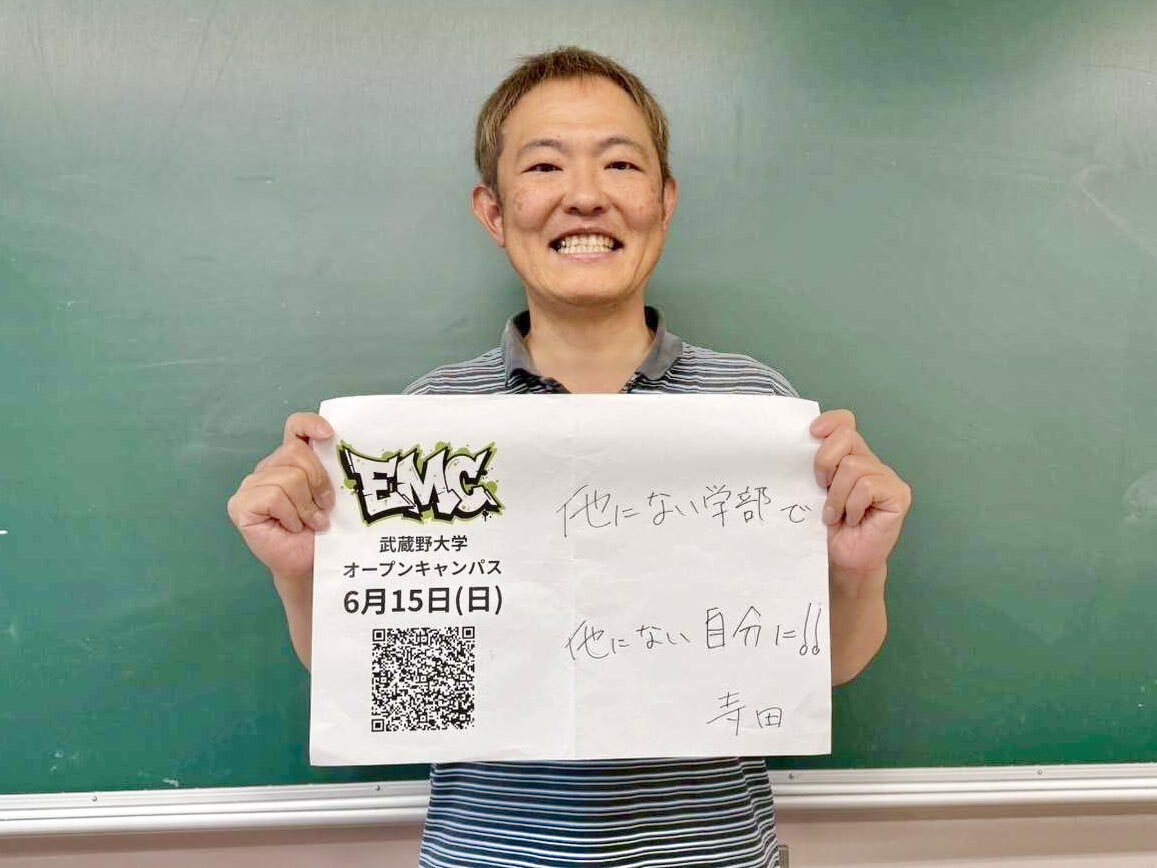 EMC
武蔵野大学
オープンキャンパス
6月15日(日)
他にない学部で
他にない自分に!!
寺田